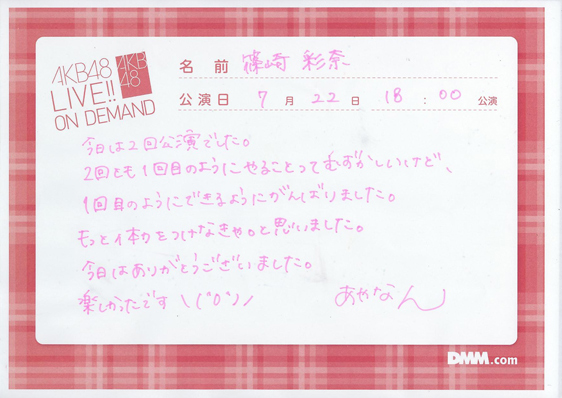 AKB48
LIVE!!
ON DEMAND
AKB
48
名 前 篠崎 彩奈
公演日 7 月 22 日 18 : 00 公演
今日は2回公演でした。
2回とも1回目のようにやることってむずかしいけど、
1回目のようにできるようにがんばりました。
もっと体力をつけなきゃ。と思いました。
今日はありがとうございました。
楽しかったです \(°0°)/
あやなん
DMM.com